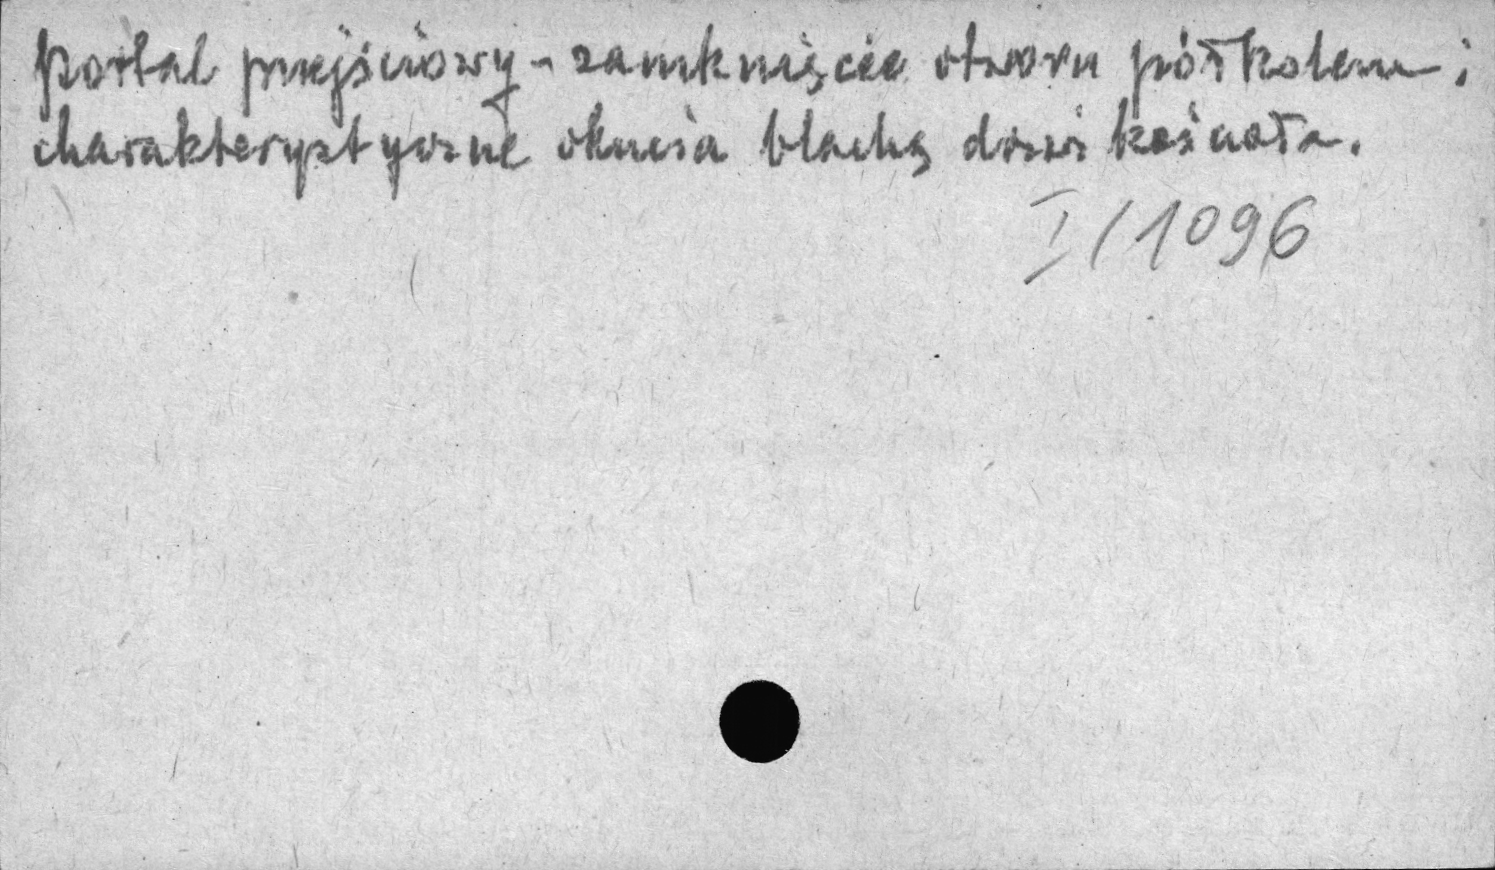 portal przejściowy - zamknięcie otworu półkolem i
charakterystyczne okucia blachą drzwi kościoła.
I/1096